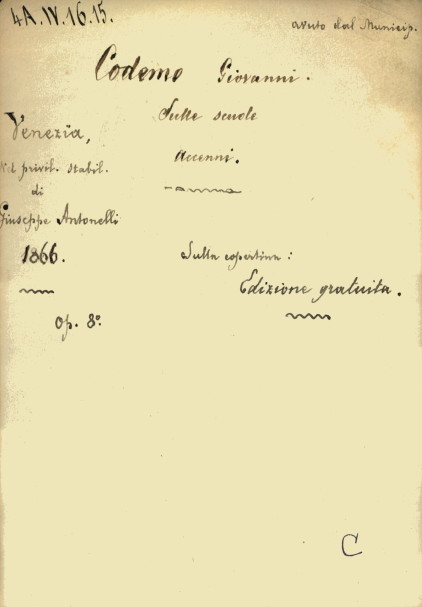 4A.IV.16.15.
avuto dal Municip.
Codemo Giovanni.
Sulle scuole
Accenni.
Venezia,
Nel privil. stabil.
di
Giuseppe Antonelli
1866.
Op. 8º.
Sulla copertina:
Edizione gratuita.
C